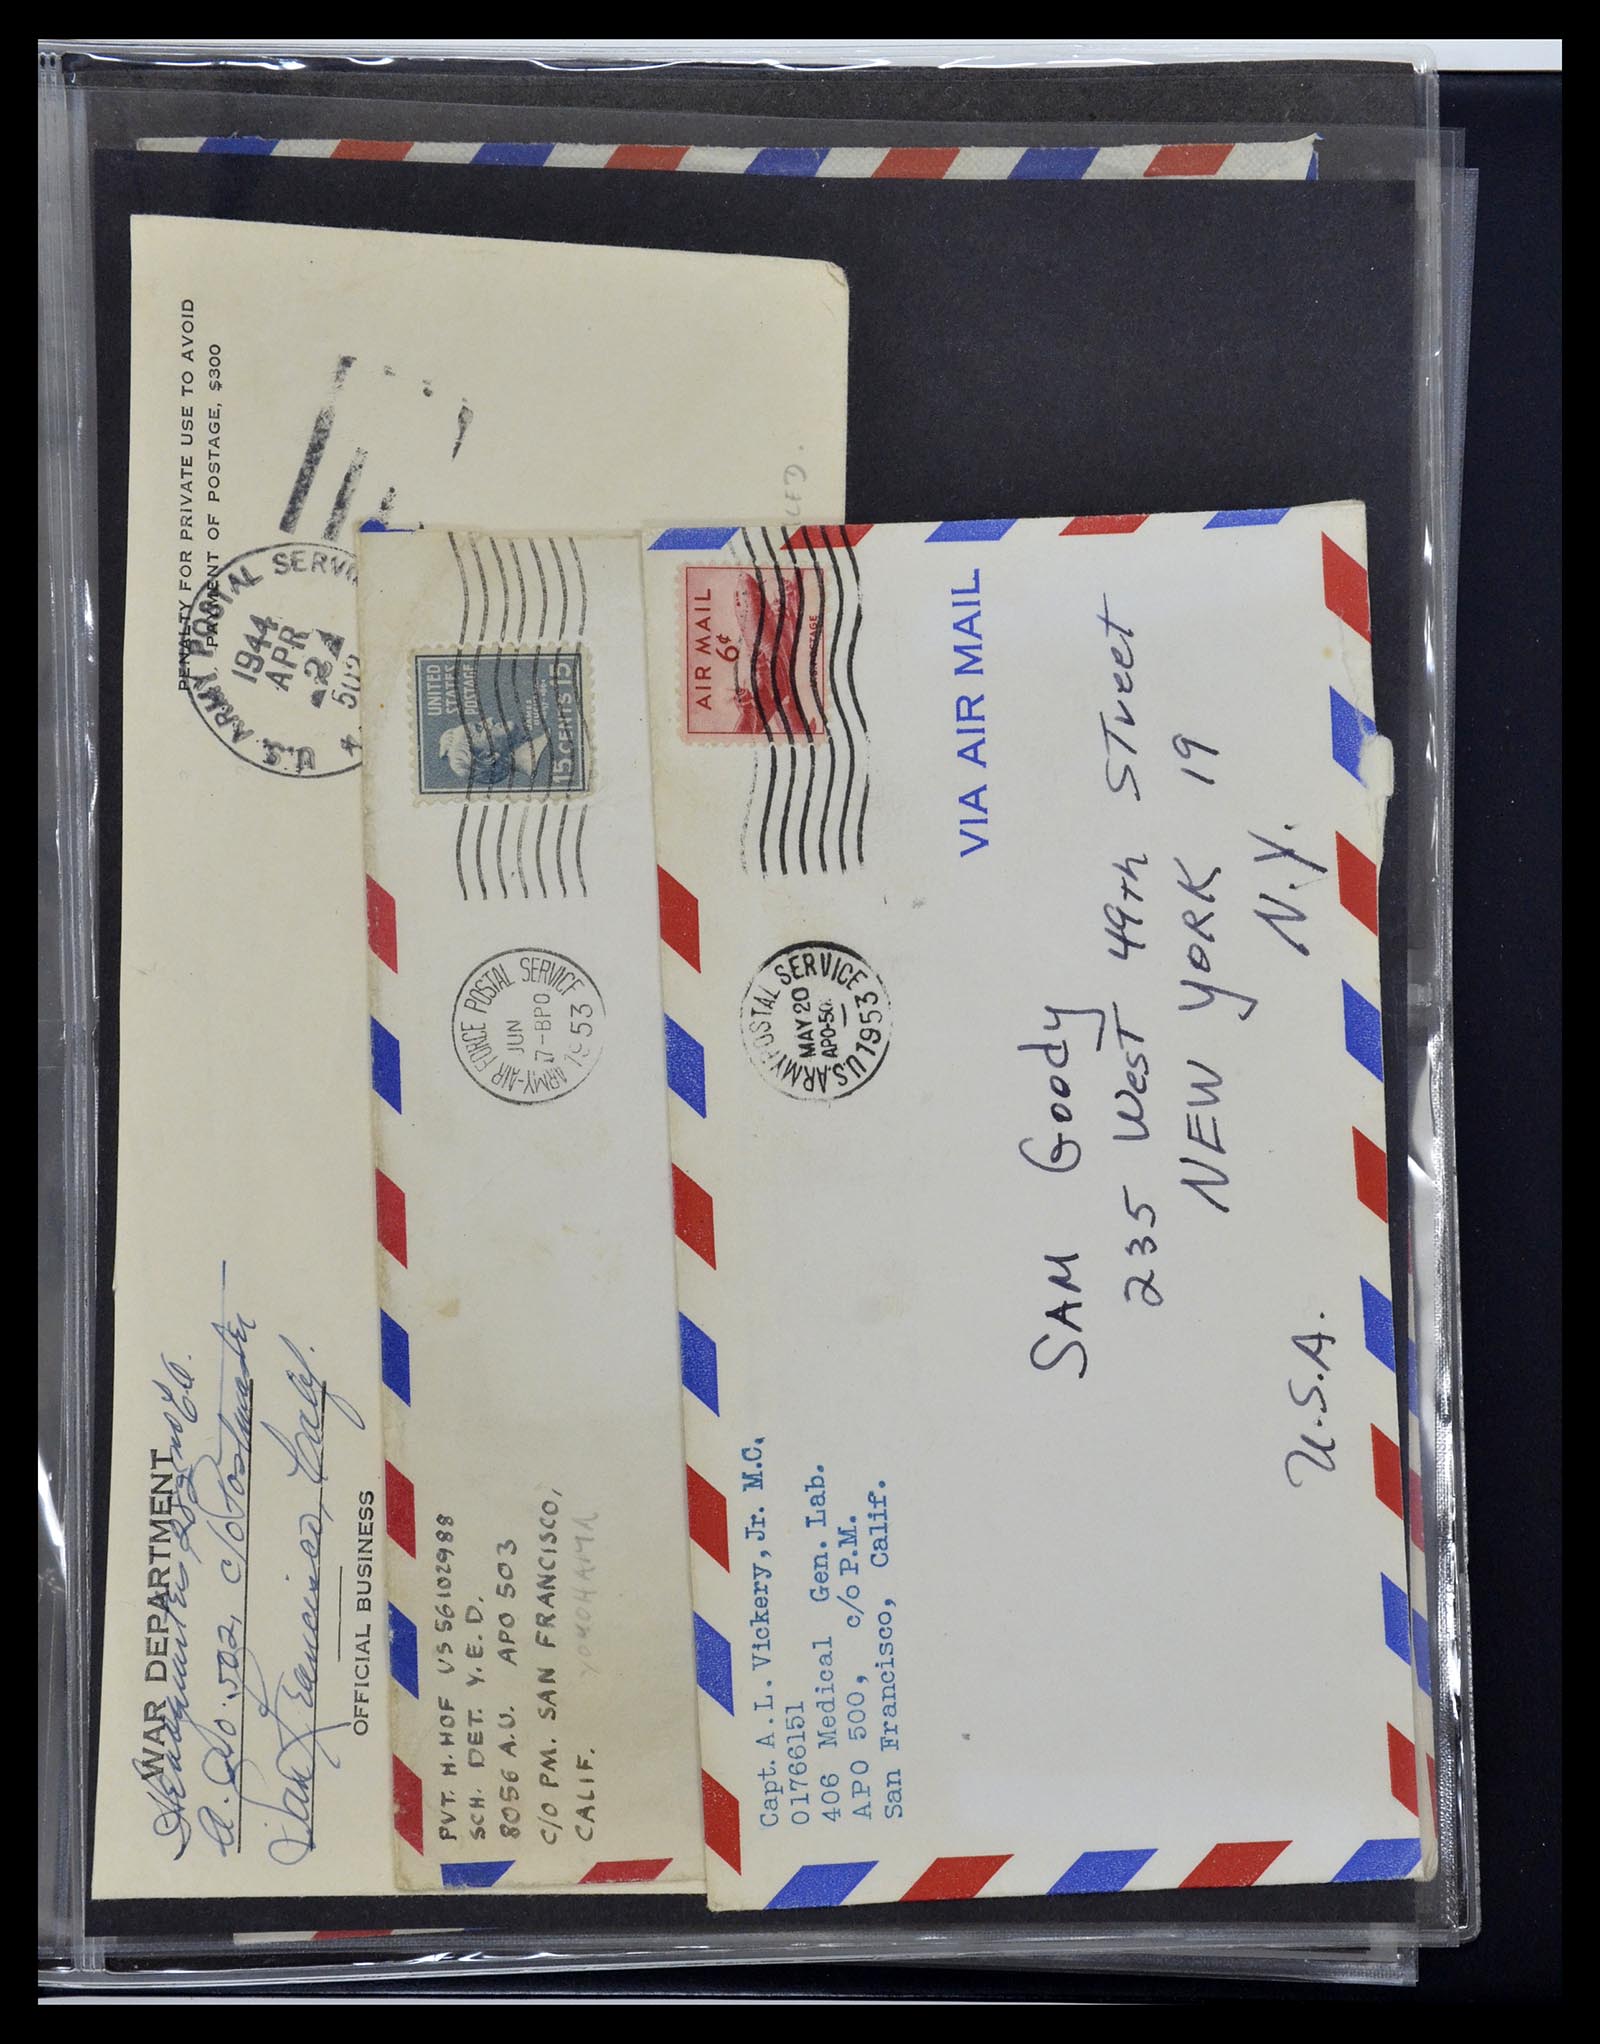 WAR DEPARTMENT
Headquarters
A.P.O. 502, c/o Postmaster
San Francisco, Calif.
OFFICIAL BUSINESS
PENALTY FOR PRIVATE USE TO AVOID
PAYMENT OF POSTAGE, $300
ARMY POSTAL SERVI
1944
APR
502
PVT. H. HOF US 56102988
SCH. DET. Y.E.D.
8056 A.U. APO 503
C/O PM. SAN FRANCISCO,
CALIF.
YOKOHAMA
ARMY-AIR FORCE POSTAL SERVICE
JUN
17-BPO
1953
UNITED
STATES
POSTAGE
15 CENTS 15
Capt. A.L. Vickery, Jr. M.C.
01766151
406 Medical Gen. Lab.
APO 500, c/o P.M.
San Francisco, Calif.
U.S. ARMY POSTAL SERVICE
MAY 20
APO-50
1953
AIR MAIL
6¢
VIA AIR MAIL
SAM Goody
235 West 49th Street
NEW YORK 19
N.Y.
U.S.A.